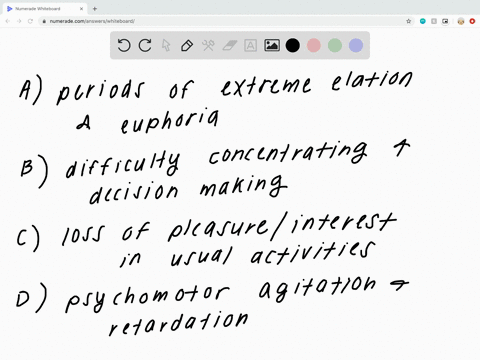 Numerade Whiteboard
numerade.com/answers/whiteboard/
A) periods of extreme elation
& euphoria
B) difficulty concentrating &
decision making
C) loss of pleasure/interest
in usual activities
D) psychomotor agitation &
retardation